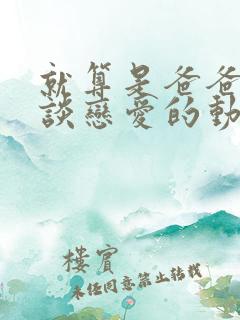 就算是爸爸
談戀愛的動
樓賓
未經同意禁止轉載